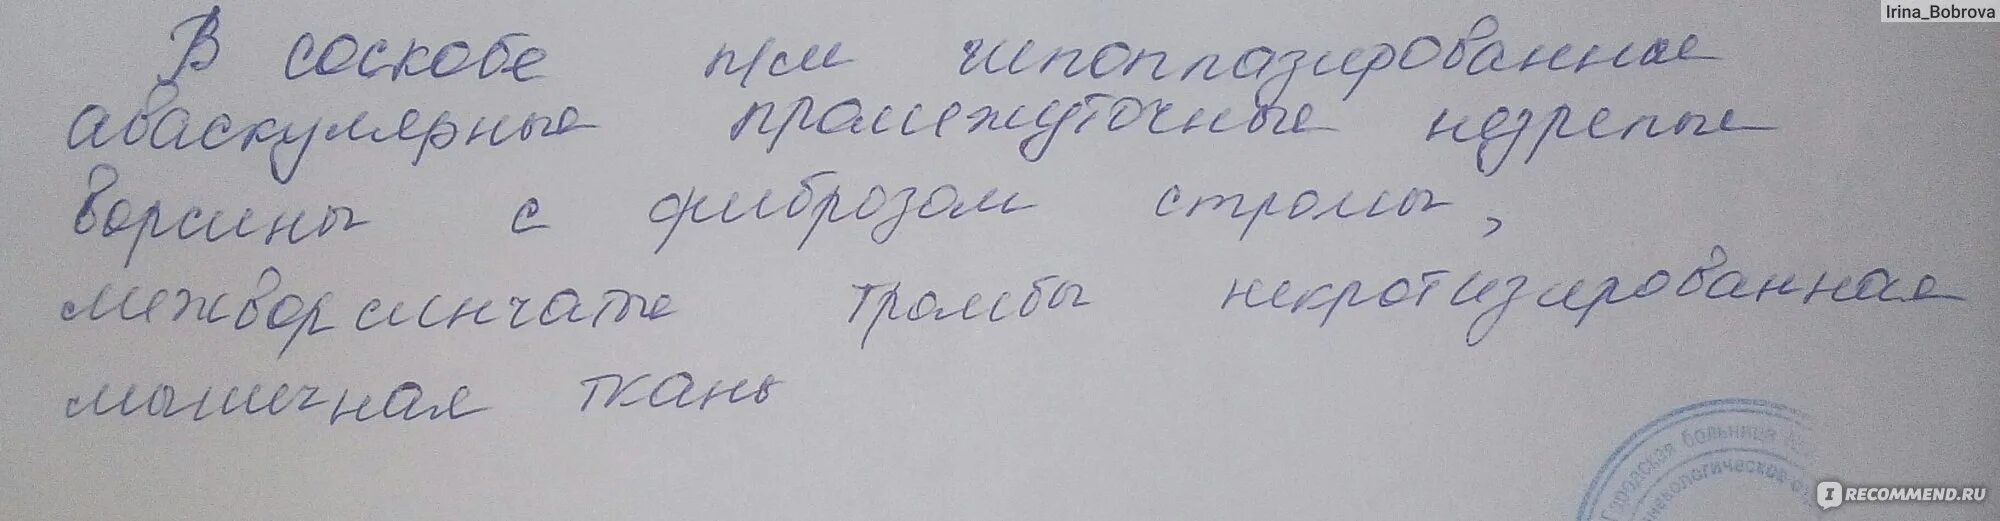 Irina_Bobrova
В соскобе п/м гипоплазированные
аваскулярные промежуточные незрелые
ворсины с фиброзом стромы,
межворсинчатые тромбы некротизированная
мышечная ткань
Городская больница
гинекологическое
IRECOMMEND.RU